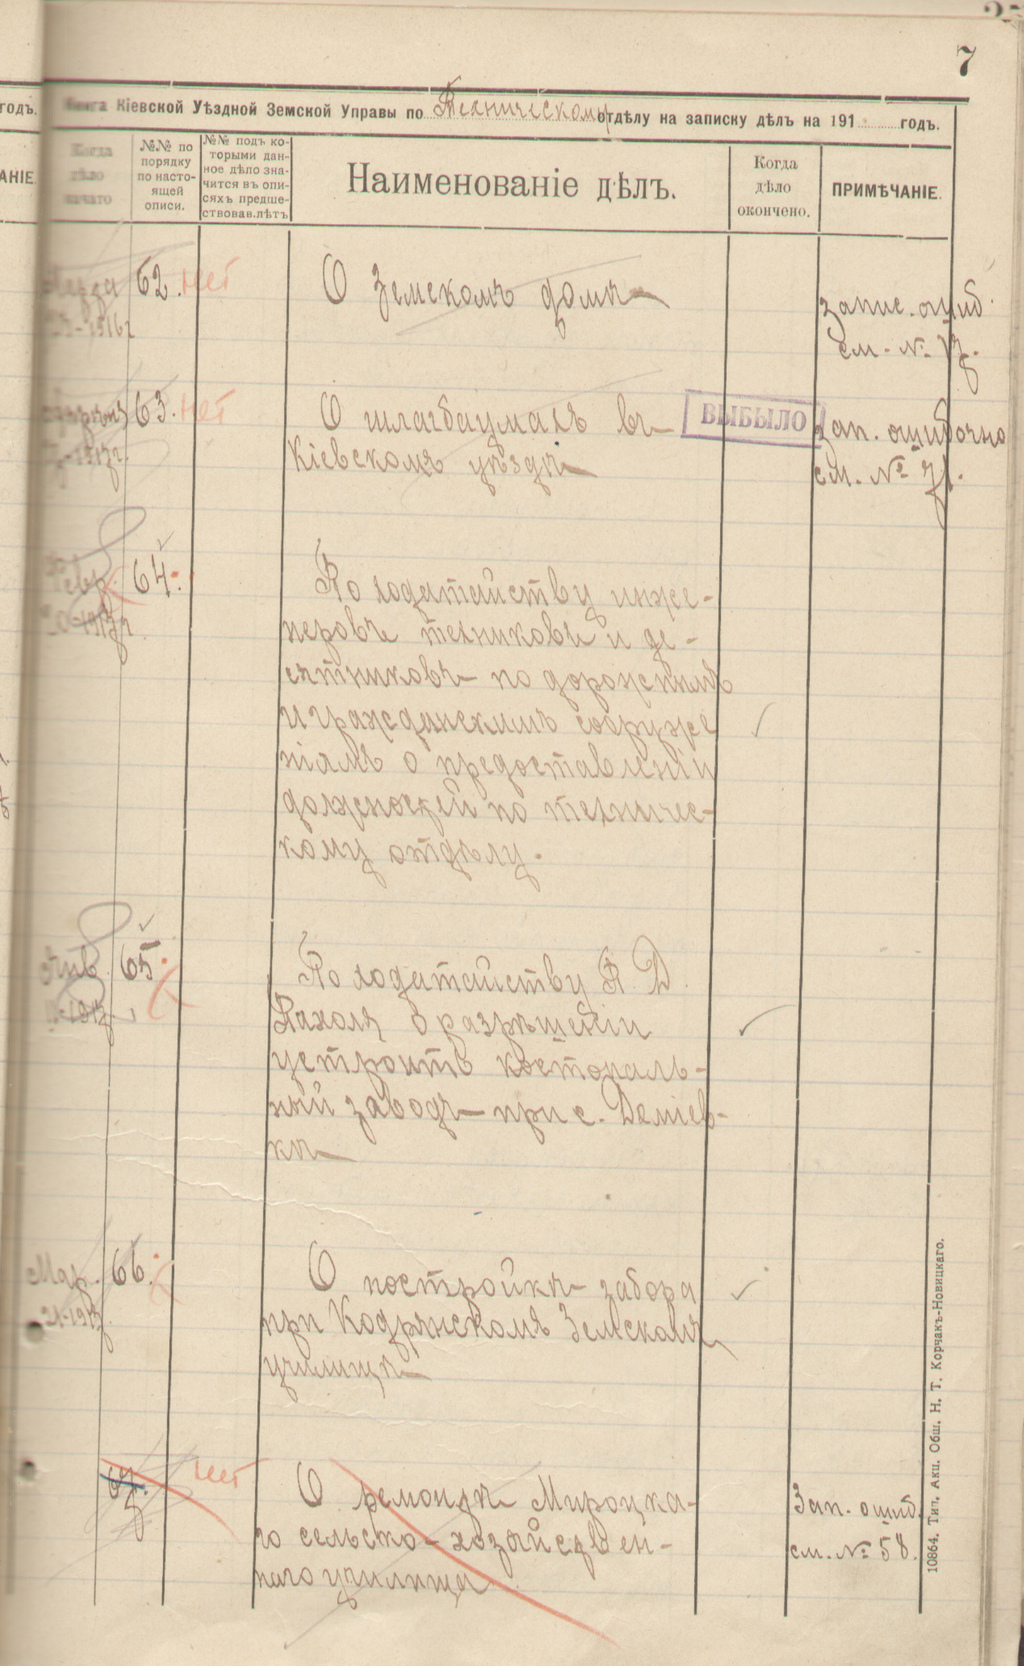 7
Кіевской Уѣздной Земской Управы по Техническому отдѣлу на записку дѣлъ на 191 годъ.
годъ.
АНІЕ.
Когда
дѣло
начато
№№ по
порядку
по насто-
ящей
описи.
№№ подъ ко-
торыми дан-
ное дѣло зна-
чится въ опи-
сяхъ предше-
ствовав. лѣтъ
Наименованіе дѣлъ.
Когда
дѣло
окончено.
ПРИМѢЧАНІЕ.
1916г
62. нет
О Земскомъ домѣ
запис. ошиб.
см. № 17.
1917г.
63. нет
О шлагбаумахъ въ
Кіевскомъ уѣздѣ
ВЫБЫЛО
Зап. ошибочно
см. № 71.
Февр.
1917г
64.
По ходатайству инже-
неровъ техниковъ и де-
сятниковъ по дорожнымъ
и гражданскимъ сооруже
ніямъ о предоставленіи
должностей по техничес-
кому отдѣлу.
Янв.
1917
65.
По ходатайству П. Д.
Пахоля о разрѣшеніи
устроить костопаль-
ный заводъ при с. Деміев-
кѣ
Мар.
21-1917
66.
О постройкѣ забора
при Кодрянскомъ Земскомъ
училищѣ
67. нет
О ремонтѣ Мироцка-
го сельско-хозяйствен-
наго училища
Зап. ошиб.
см. № 58.
10864. Тип. Акц. Общ. Н. Т. Корчакъ-Новицкаго.